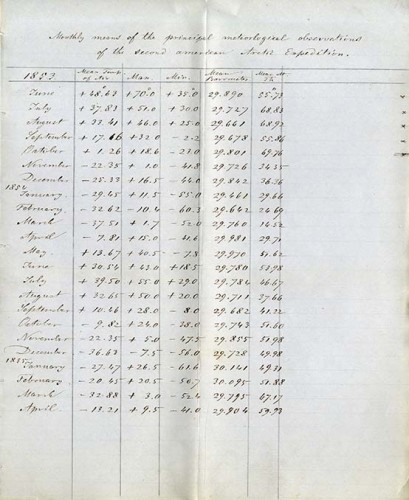 Monthly means of the principal meteorological observations
of the second american Arctic Expedition.
1853 Mean Temp of Air Max Min. Mean Barometer Mean At. Th
June + 48.63 +70.0 + 35.0 29.890
July + 37.83 + 51.0 + 30.0 29.727 68.83
August + 33.41 + 66.0 + 25.0 29.661 68.92
September + 17.66 + 32.0 - 2.2 29.678 55.86
October + 1.26 + 18.6 - 23.0 29.801 69.76
November - 22.35 + 1.0 - 41.8 29.726 34.35
December - 25.33 + 16.5 - 44.0 29.842 36.36
1854
January - 29.45 + 11.5 - 55.0 29.461 29.64
February - 32.62 - 10.4 - 60.3 29.642 24.69
March - 37.51 + 1.7 - 52.0 29.760 14.52
April - 7.81 + 15.0 - 41.6 29.981 29.71
May + 13.67 + 40.5 - 7.8 29.970 51.62
June + 30.54 + 43.0 + 18.5 29.780 53.98
July + 39.50 + 55.0 + 29.0 29.784 46.67
August + 32.65 + 50.0 + 20.0 29.711 37.66
September + 10.46 + 28.0 - 8.0 29.682 41.22
October - 9.82 + 24.0 - 28.0 29.743 51.60
November - 22.35 + 5.0 - 47.2 29.855 51.98
December - 36.63 - 7.5 - 56.0 29.728 49.98
1855
January - 27.47 + 26.5 - 61.6 30.141 49.31
February - 20.45 + 20.5 - 50.7 30.095 51.88
March - 32.88 + 3.0 - 52.4 29.795 47.17
April - 13.21 + 9.5 - 41.0 29.904 59.93